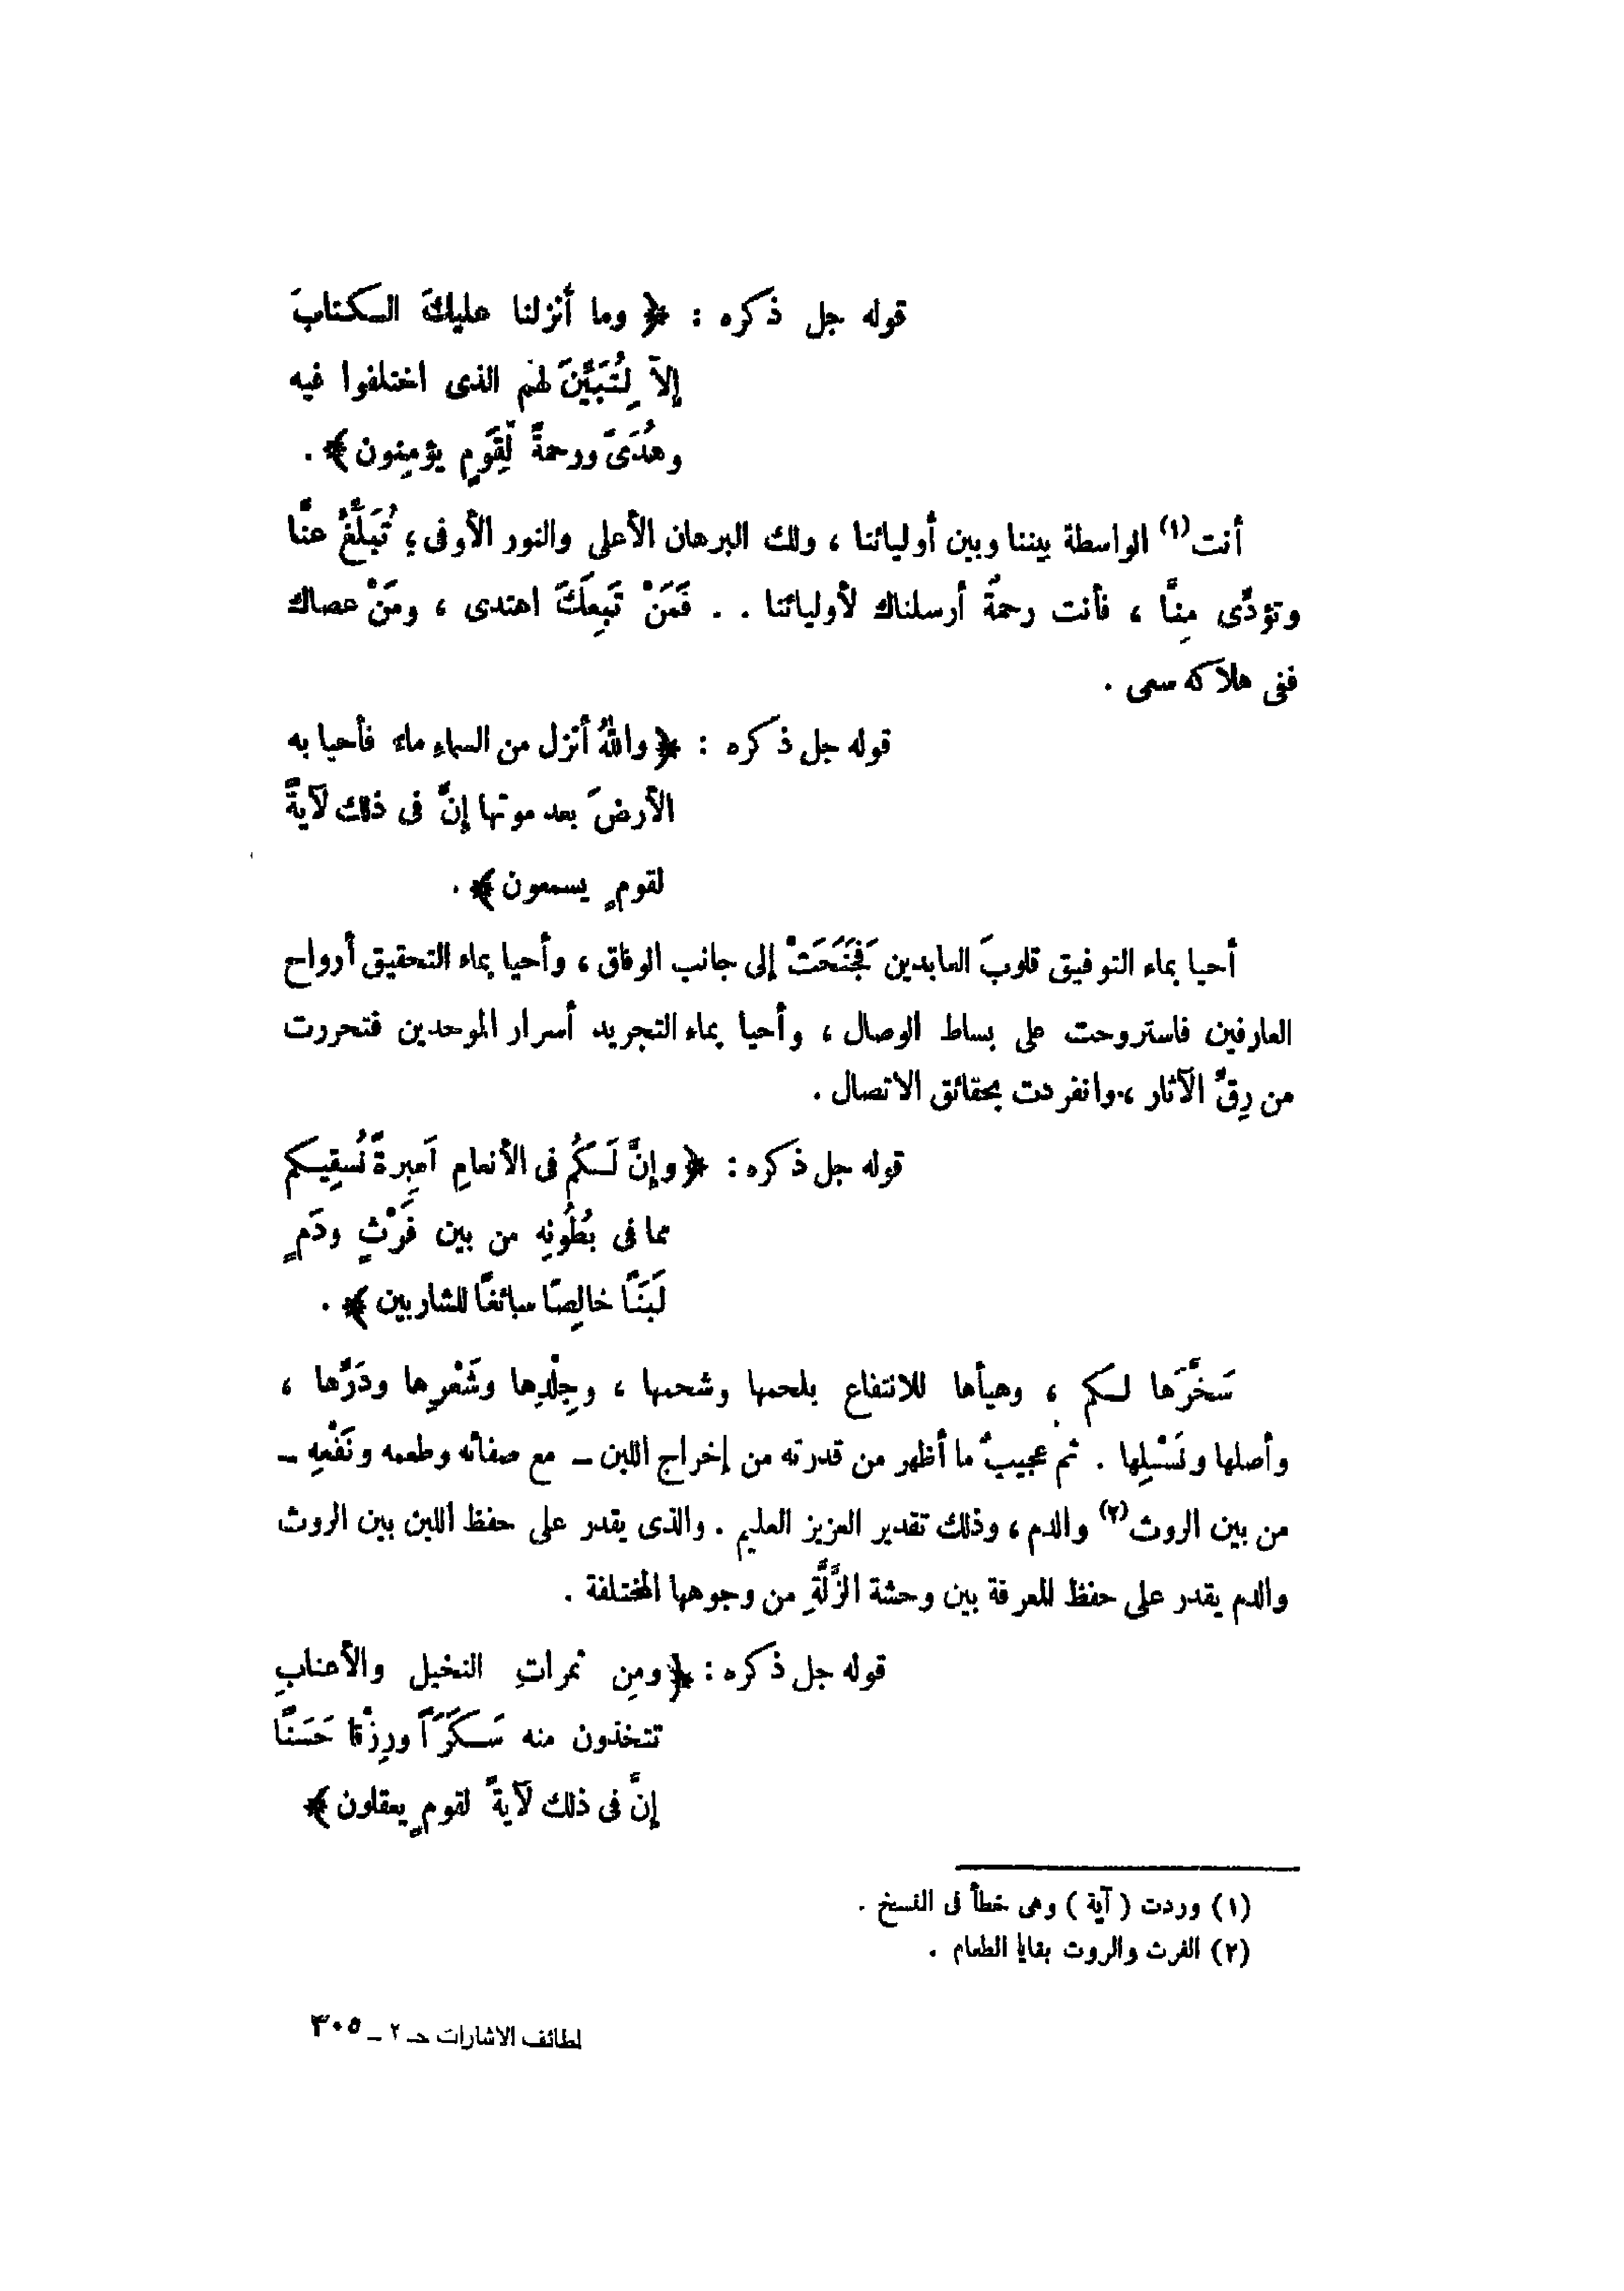 قوله جل ذكره : ﴿ وما أنزلنا عليكَ الكتابَ
إلاَّ لِتُبَيِّنَ لهم الذى اختلفوا فيه
وهُدَىً ورحمةً لِّقَوْمٍ يؤمِنون﴾ .
أنت(١) الواسطة بيننا وبين أوليائنا ، ولك البرهان الأعلى والنور الأوفى؛ تُبَلِّغُ عنَّا
وتؤدِّى مِنَّا ، فأنت رحمةٌ أرسلناك لأوليائنا . . فَمَنْ تَبِعَكَ اهتدى ، ومَنْ عصاك
ففى هلاكه سعى .
قوله جل ذكره : ﴿والله أنزل من السماءِ ماءً فأحيا به
الأرضَ بعد موتها إنَّ فى ذلك لَآيةً
لقومٍ يسمعون﴾ .
أحيا بماء التوفيق قلوبَ العابدين فَجَنَحَتْ إلى جانب الوفاق ، وأحيا بماء التحقيق أرواح
العارفين فاستروحت على بساط الوصال ، وأحيا بماء التجريد أسرار الموحدين فتحررت
من رِقِّ الآثار ، وانفردت بحقائق الاتصال .
قوله جل ذكره : ﴿وإنَّ لَكُم فى الأنعامِ لَعِبرةً نُسقِيكم
مما فى بُطُونِه من بين فَرْثٍ ودَمٍ
لَبَنًا خالِصًا سائغًا للشاربين﴾ .
سَخَّرَها لكم ، وهيأها للانتفاع بلحمها وشحمها ، وجِلْدِها وشَعْرِها ودَرِّها ،
وأصلها ونَسْلِها . ثم عجيبٌ ما أظهر من قدرته من إخراج اللبن – مع صفائه وطعمه ونَفْعِه –
من بين الروث(٢) والدم ، وذلك تقدير العزيز العليم . والذى يقدر على حفظ اللبن بين الروث
والدم يقدر على حفظ المعرفة بين وحشة الزَّلَّةِ من وجوهها المختلفة .
قوله جل ذكره : ﴿ومِن ثمراتِ النخيل والأعنابِ
تتخذون منه سَكَرَاً ورِزْقا حَسَنًا
إنَّ فى ذلك لَآيةً لقومٍ يعقلون﴾
(١) وردت ( آية ) وهى خطأ فى النسخ .
(٢) الفرث والروث بقايا الطعام .
لطائف الاشارات حـ ٢ – ٣٠٥